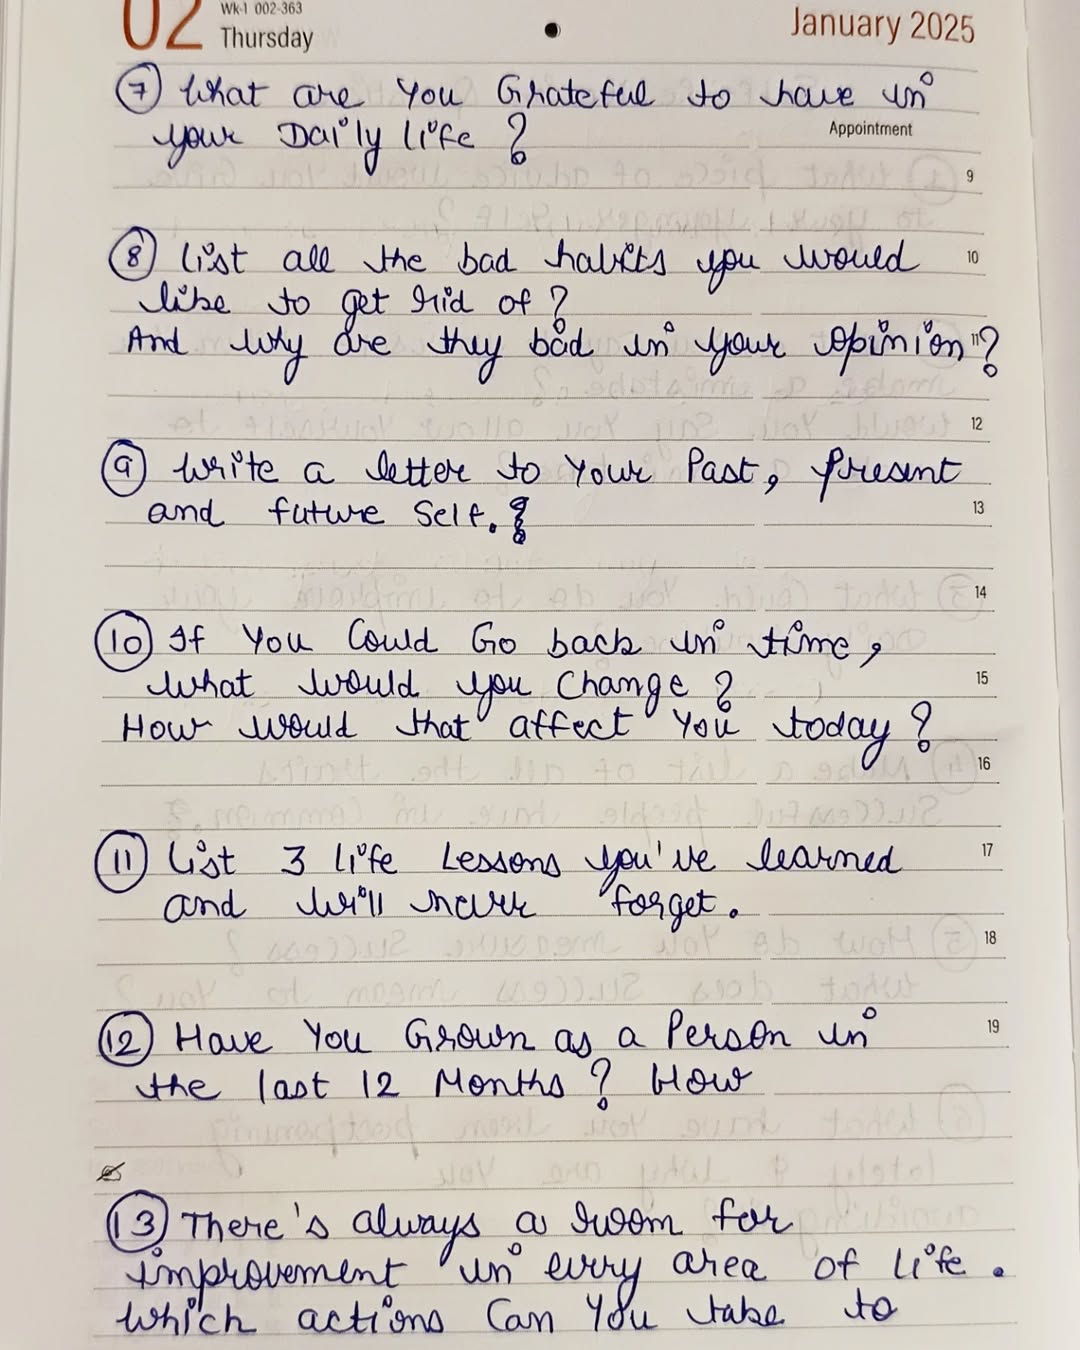 02
Wk-1 002-363
Thursday
January 2025
7 What are You Grateful to have in
your Daily life ?
Appointment
9
8 List all the bad habits you would
10
like to get rid of ?
And Why are they bad in your opinion ?
11
12
9 Write a letter to Your Past, present
and future Self.
13
14
10 If You Could Go back in time,
What would you Change ?
15
How would that affect You today ?
16
11 List 3 life Lessons you've learned
17
and will never forget.
18
12 Have You Grown as a Person in
19
the last 12 Months ? How
13 There's always a room for
improvement in every area of life.
which actions Can You take to